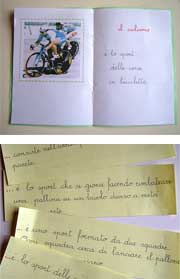 il ciclismo
è lo sport
delle corse
in bicicletta
... consiste nell'
parete.
... è lo sport che si gioca facendo rimbalzare
una pallina su un tavolo diviso a metà
... è uno sport formato da due squadre.
Ogni squadra cerca di lanciare il pallone
... è lo sport delle